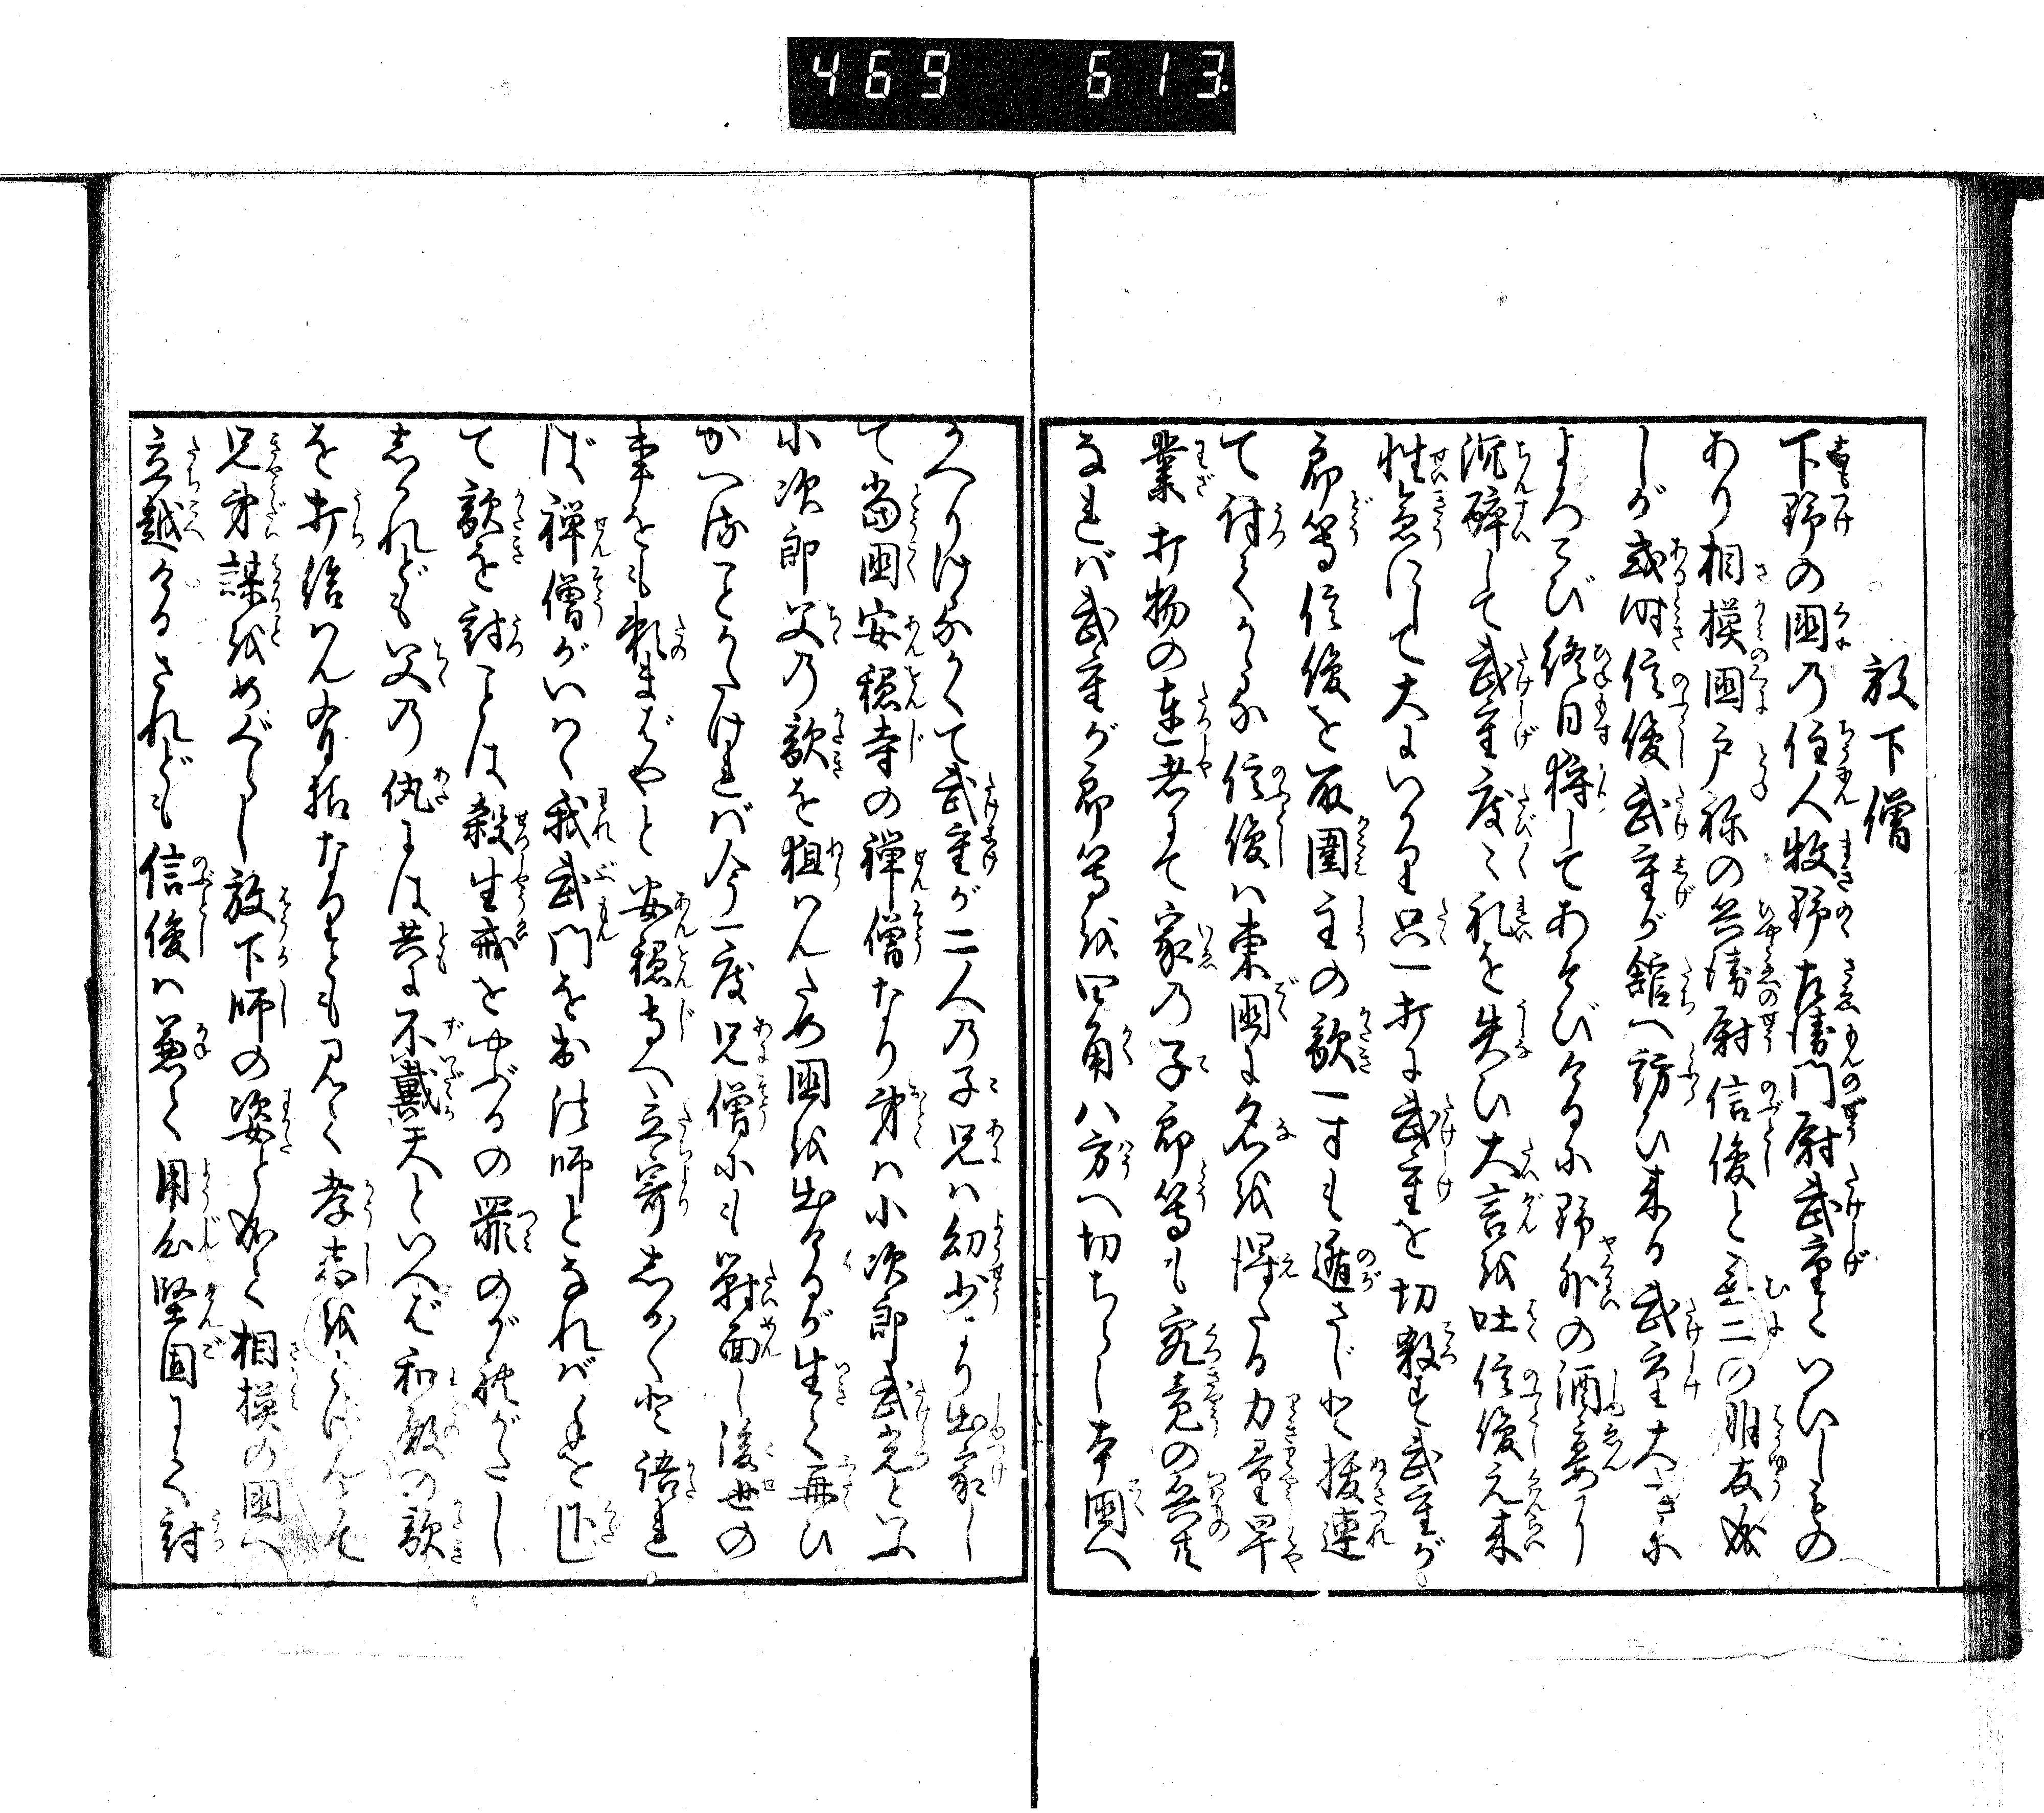 469 613
放下僧
下野の国の住人牧野左衛門尉武重といひしもの
あり相模国戸祢の兵衛尉信俊と無二の朋友成
しが或時信俊武重が舘へ訪ひ来る武重大きに
よろこび終日狩してあそびけるに野外の酒宴より
沈酔して武重度々礼を失ひ大言を吐信俊元来
性急にして大にいかり只一打に武重を切殺す武重が
郎等信俊を取囲主の敵一寸も遁さじと抜連
て討てかゝる信俊は東国に名を得たる力量早
業打物の達者にて家の子郎等も究竟の兵共
なれば武重が郎等を四角八方へ切ちらし本国へ
かへりけるかくて武重が二人の子兄は幼少より出家し
て当国安穏寺の禅僧なり弟は小次郎武光といふ
小次郎父の敵を狙はんため国を出けるが生て再び
かへることかたければ今一度兄僧にも対面し後世の
事をも頼まばやと安穏寺へ立寄しか〴〵と語れ
ば禅僧がいはく我武門を出法師となれば手を下し
て敵を討ことは殺生戒をやぶるの罪のがれがたし
しかれども父の仇には共に不戴天といへば和殿の敵
を打給はん有様なりとも見て孝志をとげんとて
兄弟謀をめぐらし放下師の姿と成て相模の国へ
立越けるされども信俊は兼て用心堅固にして討